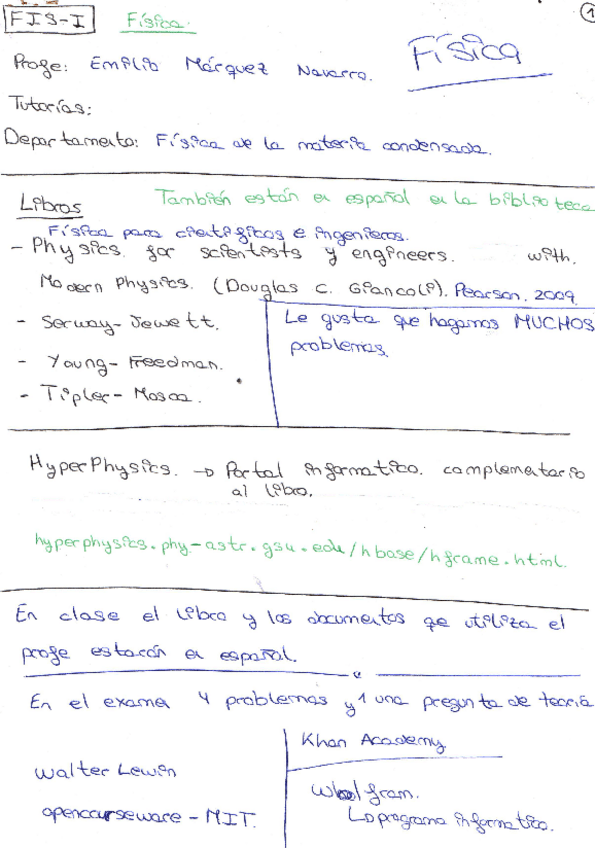 FIS-I Física. 1
Física
Profe: Emilio Márquez Navarro.
Tutorías:
Departamento: Física de la materia condensada.
También están en español en la biblioteca
Libros
Física para científicos e ingenieros.
- Physics for scientists y engineers. with.
Modern Physics. (Douglas C. Giancoli). Pearson. 2009
- Serway-Jewett.
- Young-Freedman.
- Tipler-Mosca.
Le gusta que hagamos MUCHOS
problemas.
HyperPhysics. → Portal informatico. complementario
al libro.
hyperphysics.phy-astr.gsu.edu/hbase/hframe.html.
En clase el libro y los documentos qe utiliza el
profe estarán en español.
En el examen 4 problemas y 1 una pregunta de teoría
Khan Academy
Walter Lewin
opencurseware - MIT.
Wolfram.
↳ programa informatico.